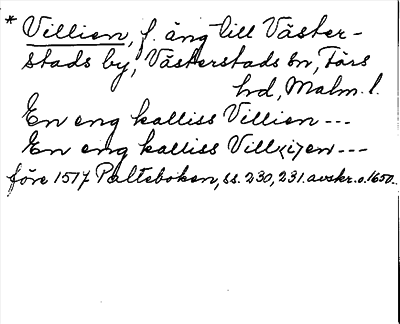 * Villien, f. äng till Väster-
stads by, Västerstads sn, Färs
hd, Malm. l.
En eng kalliss Villien ---
En eng kalliss Vill<i>en ---
före 1517 Palteboken, ss. 230, 231. avskr. o. 1650.